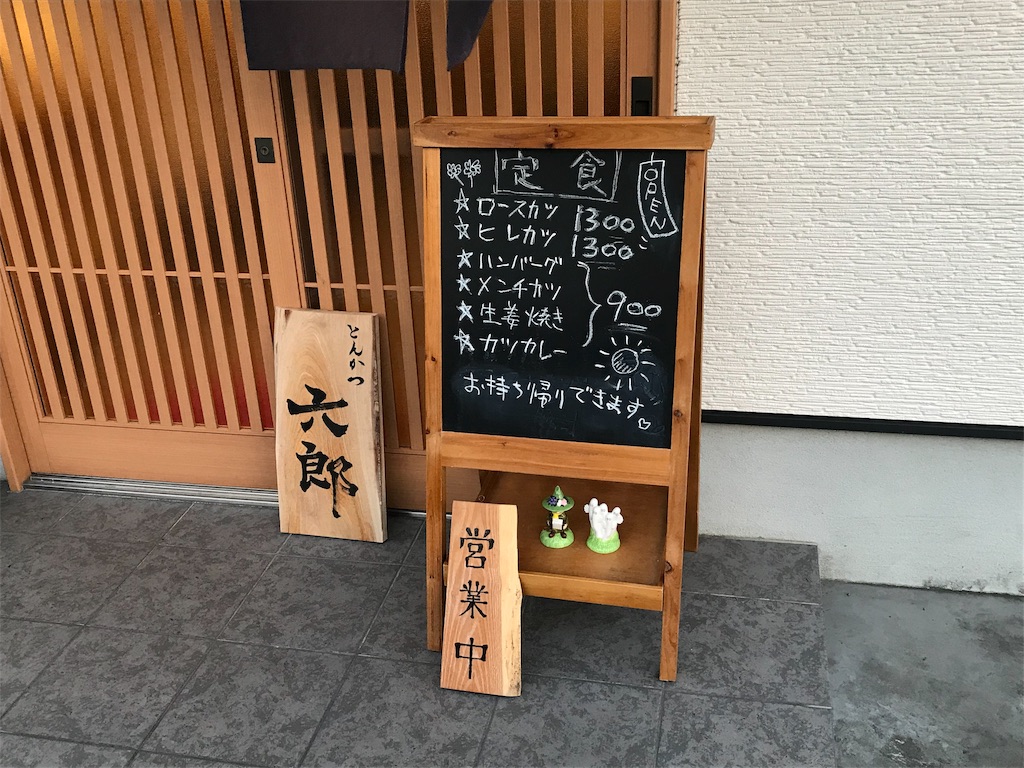 とんかつ
六郎
営業中
定食
OPEN
☆ロースカツ 1300
☆ヒレカツ 1300
☆ハンバーグ
☆メンチカツ
☆生姜焼き
☆カツカレー
900
お持ち帰りできます♡